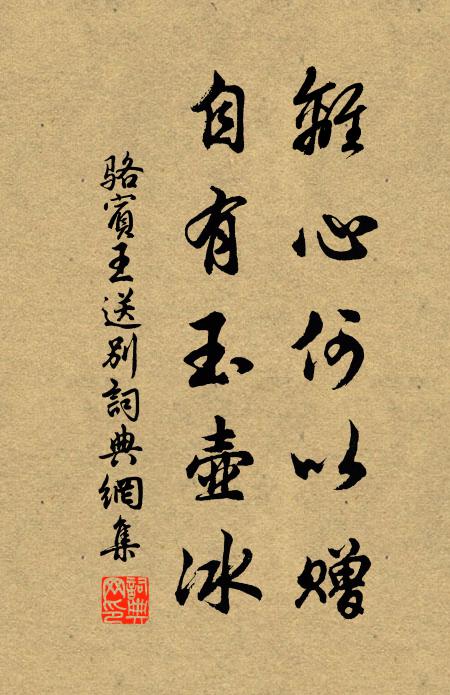 離心何以贈
自有玉壺冰
駱賓王送別詞典網集
詞典网印